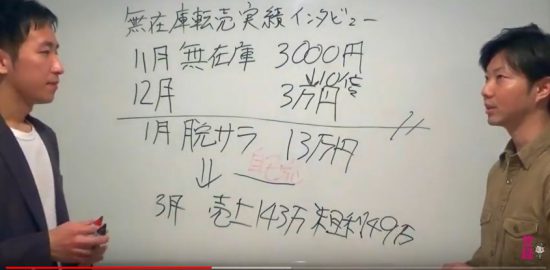 無在庫転売実績インタビュー
11月 無在庫 3000円
12月 3万円 10倍
1月 脱サラ 13万円
3月 売上143万 粗利49万